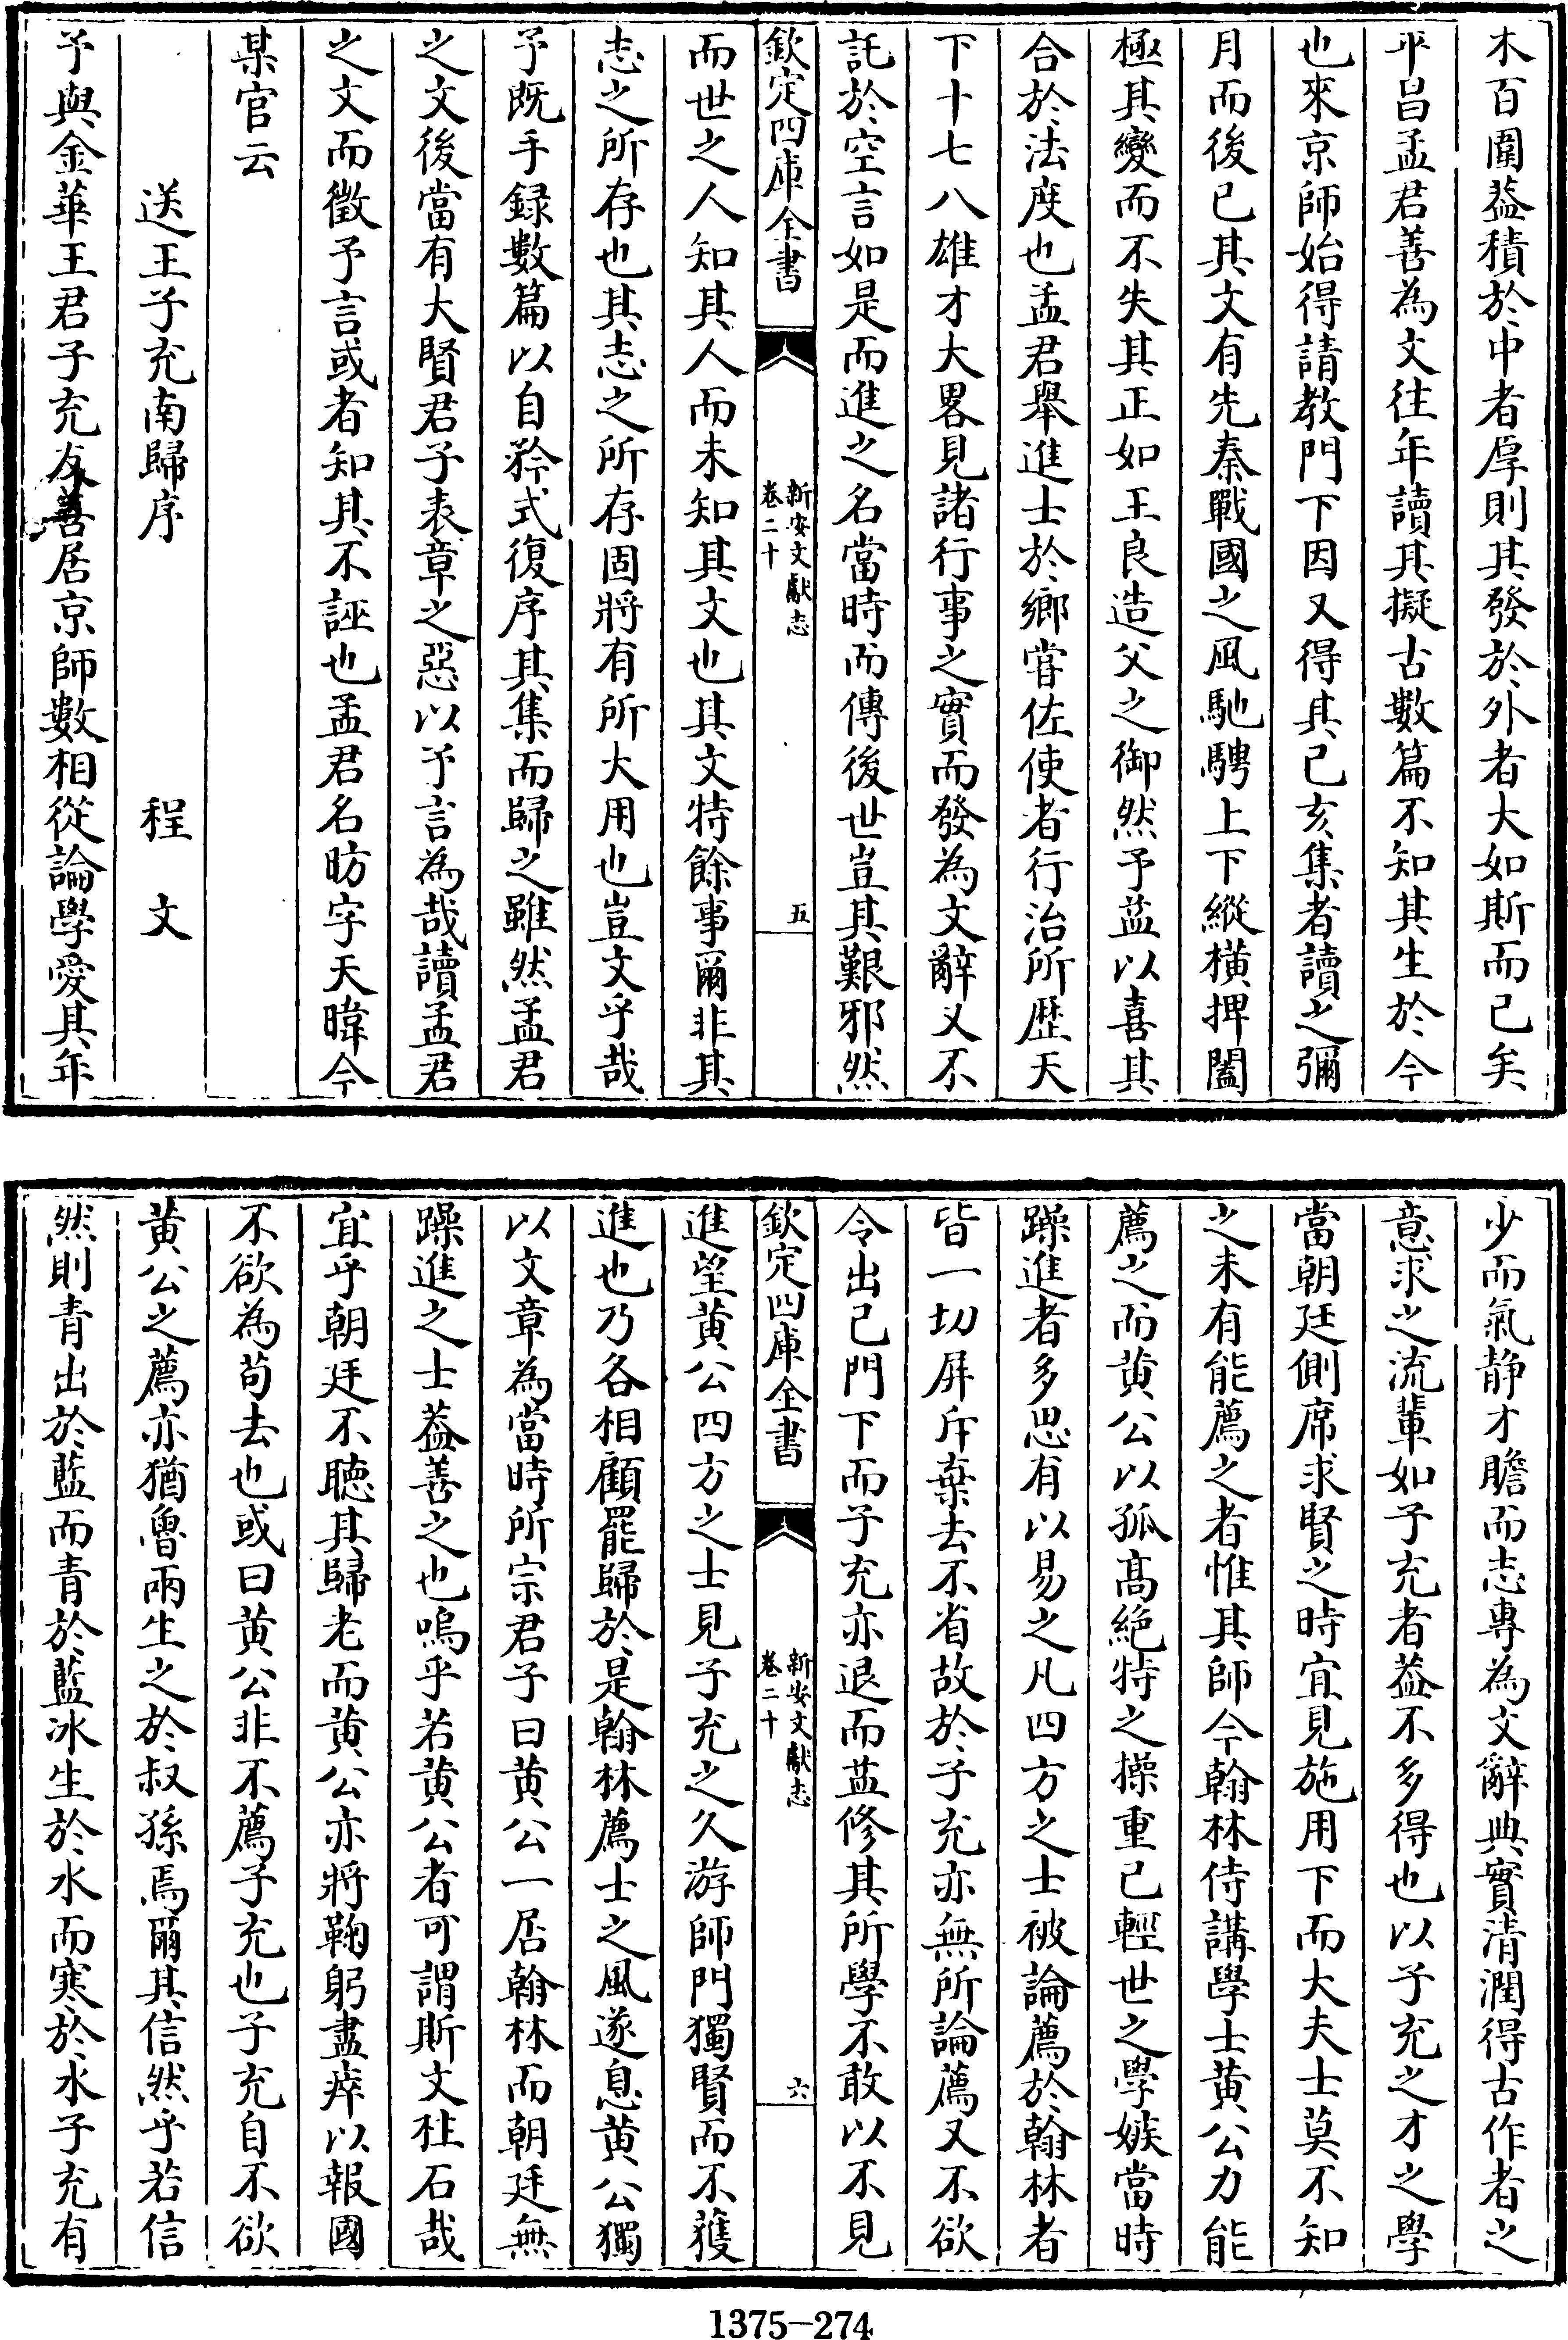 木百圍葢積於中者厚則其發於外者大如斯而已矣
平昌孟君善為文往年讀其擬古數篇不知其生於今
也來京師始得請教門下因又得其己亥集者讀之彌
月而後已其文有先秦戰國之風馳騁上下縱橫捭闔
極其變而不失其正如王良造父之御然予益以喜其
合於法度也孟君舉進士於鄉嘗佐使者行治所歴天
下十七八雄才大畧見諸行事之實而發為文辭又不
託於空言如是而進之名當時而傳後世豈其艱邪然
欽定四庫全書
新安文獻志
卷二十
五
而世之人知其人而未知其文也其文特餘事爾非其
志之所存也其志之所存固將有所大用也豈文乎哉
予既手録數篇以自矜式復序其集而歸之雖然孟君
之文後當有大賢君子表章之惡以予言為哉讀孟君
之文而徵予言或者知其不誣也孟君名昉字天暐今
某官云
送王子充南歸序 程文
予與金華王君子充友善居京師數相從論學愛其年
少而氣静才贍而志專為文辭典實清潤得古作者之
意求之流輩如子充者葢不多得也以子充之才之學
當朝廷側席求賢之時宜見施用下而大夫士莫不知
之未有能薦之者惟其師今翰林侍講學士黄公力能
薦之而黄公以孤高絶特之操重己輕世之學嫉當時
躁進者多思有以易之凡四方之士被論薦於翰林者
皆一切屏斥棄去不省故於子充亦無所論薦又不欲
令出己門下而子充亦退而益修其所學不敢以不見
欽定四庫全書
新安文獻志
卷二十
六
進望黄公四方之士見子充之久游師門獨賢而不獲
進也乃各相顧罷歸於是翰林薦士之風遂息黄公獨
以文章為當時所宗君子曰黄公一居翰林而朝廷無
躁進之士葢善之也嗚乎若黄公者可謂斯文柱石哉
宜乎朝廷不聽其歸老而黄公亦將鞠躬盡瘁以報國
不欲為茍去也或曰黄公非不薦子充也子充自不欲
黄公之薦亦猶魯兩生之於叔孫焉爾其信然乎若信
然則青出於藍而青於藍冰生於水而寒於水子充有
1375-274